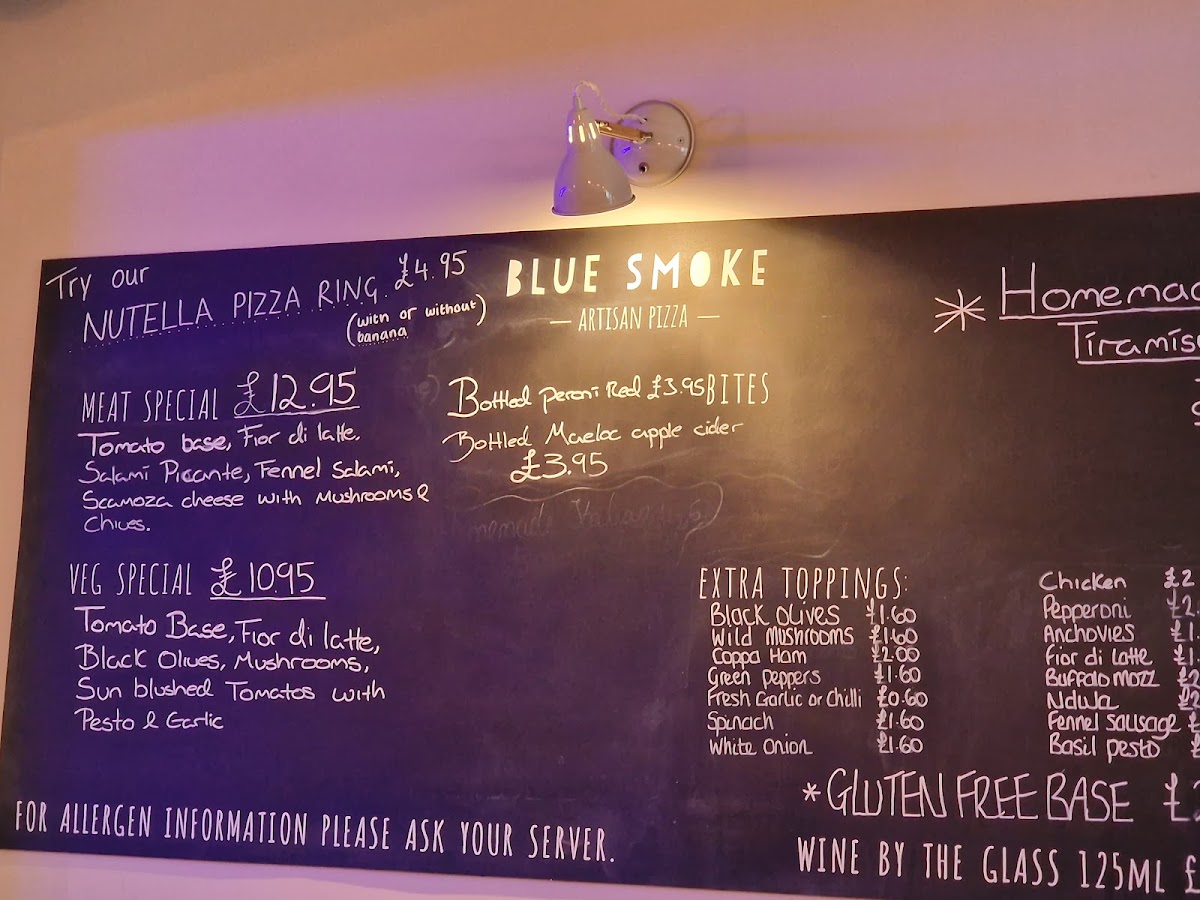 Try our
NUTELLA PIZZA RING. £4.95
(with or without)
banana
BLUE SMOKE
— ARTISAN PIZZA —
MEAT SPECIAL £12.95
Tomato base, Fior di latte.
Salami Picante, Fennel Salami,
Scamoza cheese with Mushrooms &
Chives.
VEG SPECIAL £10.95
Tomato Base, Fior di latte,
Black Olives, Mushrooms,
Sun blushed Tomatos with
Pesto & Garlic
Bottled peroni Red £3.95 BITES
Bottled Maeloc apple cider
£3.95
* Homemad
Tiramis
EXTRA TOPPINGS:
Black Olives £1.60
Wild Mushrooms £1.60
Coppa Ham £2.00
Green Peppers £1.60
Fresh Garlic or Chilli £0.60
Spinach £1.60
White Onion £1.60
Chicken £2
Pepperoni £2.
Anchovies £1.
Fior di latte £1.
Buffalo Mozz £2
Nduja £2
Fennel Sausage £
Basil pesto £
*GLUTEN FREE BASE £
WINE BY THE GLASS 125ML £
FOR ALLERGEN INFORMATION PLEASE ASK YOUR SERVER.